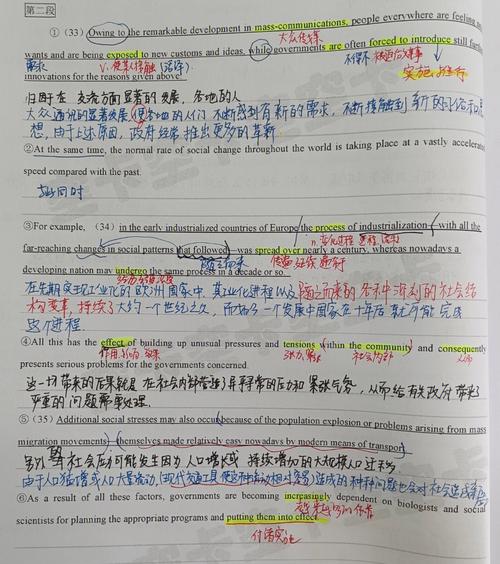 第二段
① (33) Owing to the remarkable development in mass-communications, people everywhere are feeling new
大众传媒
wants and are being exposed to new customs and ideas, while governments are often forced to introduce still further
需求 v. 使某人接触
innovations for the reasons given above.
实施，推行
归因于在 交流方面显著的发展，各地的人
大众通讯的显著发展，使各地的人们不断感到有新的需求，不断接触到新的习俗和思
想，由于上述原因，政府经常推出更多的革新
②At the same time, the normal rate of social change throughout the world is taking place at a vastly accelerated
speed compared with the past.
与此同时
③For example, (34) in the early industrialized countries of Europe the process of industrialization—with all the
n. 工业化进程
far-reaching changes in social patterns that followed—was spread over nearly a century, whereas nowadays a
随之而来
developing nation may undergo the same process in a decade or so.
在先期实现工业化的欧洲国家中，其工业化进程以及随之而来的各种深刻的社会结
构变革，持续了大约一个世纪之久，而如今一个发展中国家在十年左右就可能完成
这个进程.
④All this has the effect of building up unusual pressures and tensions within the community and consequently
作用，影响，效果 张力，紧张 社会内部 从而
presents serious problems for the governments concerned.
这一切带来的后果就是在社会内部营造了异乎寻常的压力和紧张气氛，从而给有关政府带来了
严重的问题需要处理.
⑤ (35) Additional social stresses may also occur because of the population explosion or problems arising from mass
migration movements—themselves made relatively easy nowadays by modern means of transport.
另外 社会压力可能发生因为人口增长或 持续增加的大规模人口迁移
由于人口猛增或人口大量流动（现代交通工具使这种流动相对容易）造成的种种问题也会对社会造成
⑥As a result of all these factors, governments are becoming increasingly dependent on biologists and social
越来越
scientists for planning the appropriate programs and putting them into effect.
付诸实施